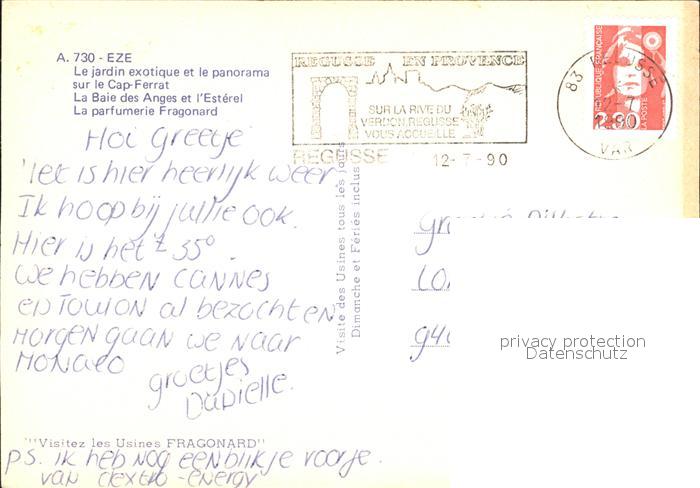 A. 730 - EZE
Le jardin exotique et le panorama
sur le Cap-Ferrat
La Baie des Anges et l'Estérel
La parfumerie Fragonard
REGUSSE EN PROVENCE
SUR LA RIVE DU
VERDON, REGUSSE
VOUS ACCUELLE
REGUSSE 12-7-90
83 REGUSSE
12-7
1990
VAR
REPUBLIQUE FRANÇAISE
LA POSTE
Hoi Greetje
'let is hier heerlijk weer
Ik hoop bij jullie ook.
Hier is het ± 35°.
We hebben Cannes
en Toulon al bezochten
Morgen gaan we naar
Monaco
groetjes
Danielle.
Visite des Usines tous les jours
Dimanche et Fériés inclus
privacy protection
Datenschutz
"Visitez les Usines FRAGONARD"
p.s. ik heb nog een blikje voor je.
van dextro-energy